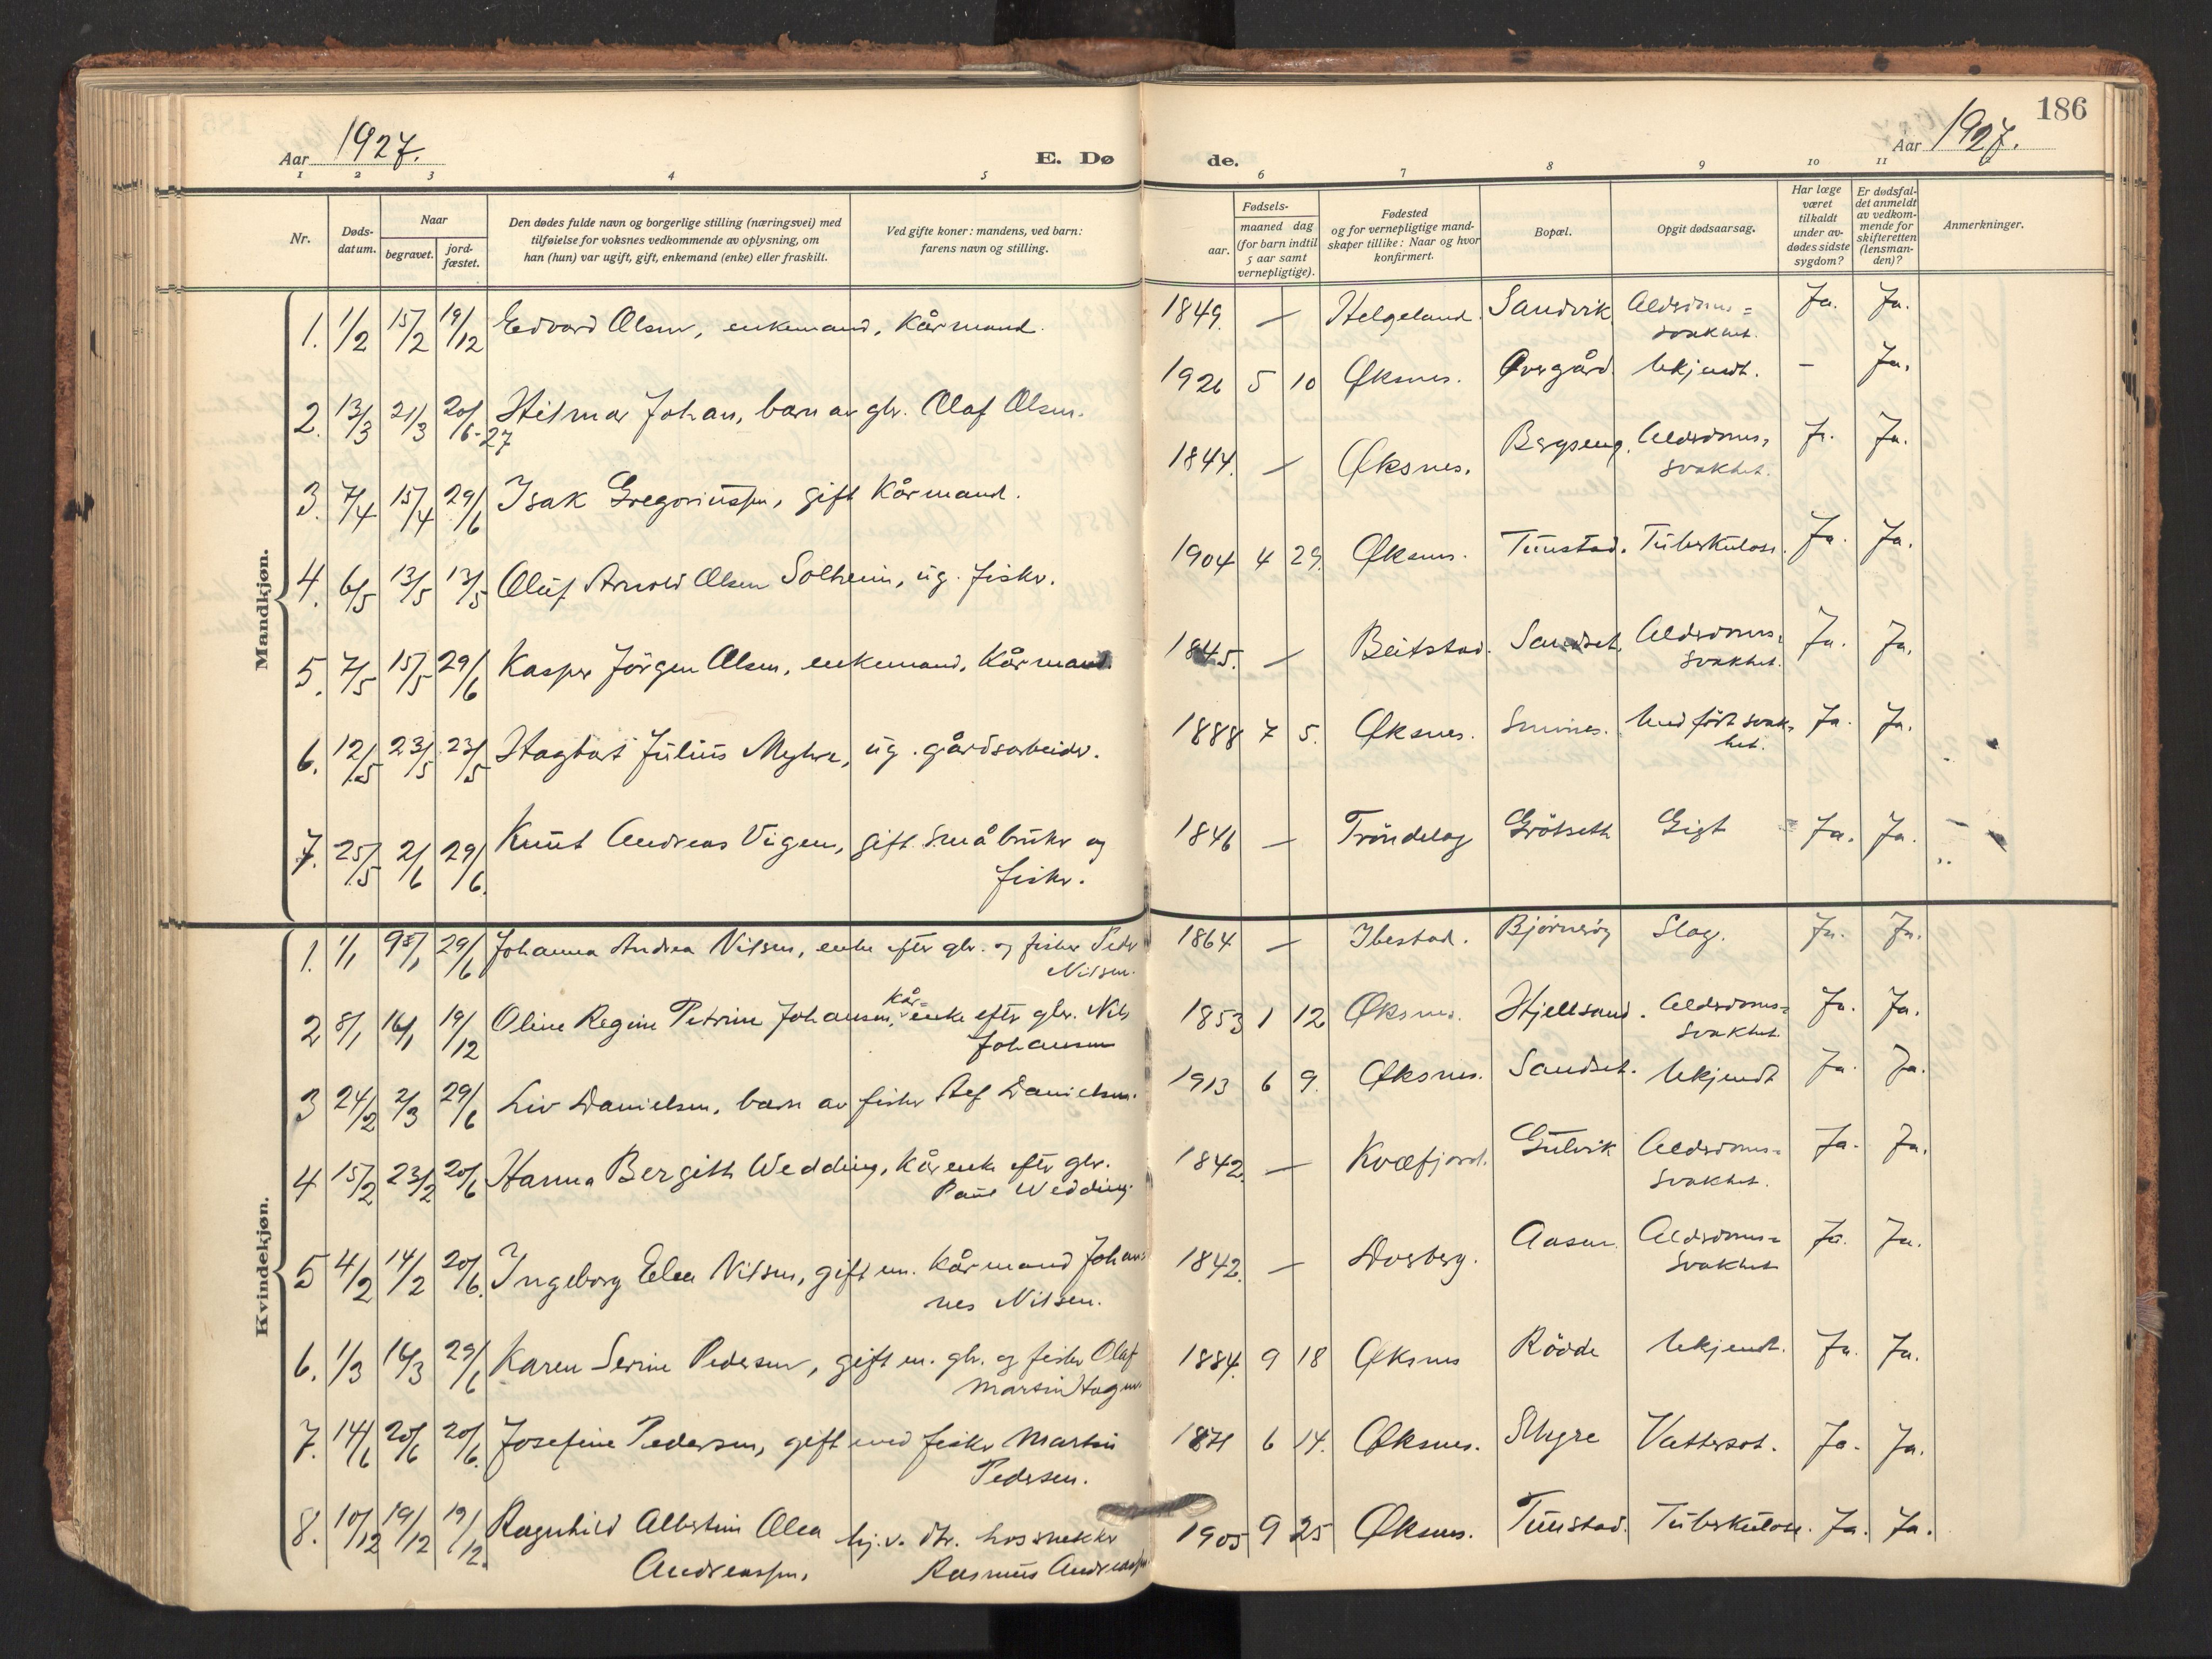 186
Aar 1927.
E. Dø
de.
Aar 1927.
1 2 3 4 5 6 7 8 9 10 11
Nr.
Døds-
datum.
Naar
begravet.
jord-
fæstet.
Den dødes fulde navn og borgerlige stilling (næringsvei) med
tilføielse for voksnes vedkommende av oplysning, om
han (hun) var ugift, gift, enkemand (enke) eller fraskilt.
Ved gifte koner: mandens, ved barn:
farens navn og stilling.
Fødsels-
aar.
maaned dag
(for barn indtil
5 aar samt
vernepligtige).
Fødested
og for vernepligtige mand-
skaper tillike: Naar og hvor
konfirmert.
Bopæl.
Opgit dødsaarsag.
Har læge
været
tilkaldt
under av-
dødes sidste
sygdom?
Er dødsfal-
det anmeldt
av vedkom-
mende for
skifteretten
(lensman-
den)?
Anmerkninger.
Mandkjøn.
1. 1/2 15/2 19/12 Edvard Olsen, enkemand, Kårmand. 1849. — Helgeland. Sandvik Alderdoms=
svakhet. Ja. Ja.
2. 13/3 21/3 20/6-27 Hilmar Johan, barn av gbr. Olaf Olsen. 1926 5 10 Øksnes. Øvergård. Ukjendt. — Ja.
3. 7/4 15/4 29/6 Isak Gregoriussen, gift Kårmand. 1844. — Øksnes. Bergseng. Alderdoms=
svakhet. Ja. Ja.
4. 6/5 13/5 13/5 Oluf Arnold Olsen Solheim, ug. fisker. 1904 4 29. Øksnes. Tunstad. Tuberkulose. Ja. Ja.
5. 7/5 15/5 29/6 Kasper Jörgen Olsen, enkemand, Kårmand. 1845. — Beitstad. Sandset. Alderdoms=
svakhet. Ja. Ja.
6. 12/5 23/5 23/5 Hagbart Julius Myhre, ug. gårdsarbeider. 1888 7 5. Øksnes. Smines. Medfödt svak-
het. Ja. Ja.
7. 25/5 2/6 29/6. Knut Andreas Vigen, gift småbruker og
fisker. 1846 — Tröndelag Grötseth Gigt Ja. Ja.
Kvindekjøn.
1. 1/1 9/1 29/6 Johanna Andrea Nilsen, enke efter gbr. og fisker Peder
Nilsen. 1864 — Ibestad. Bjørnrøy Slag. Ja. Ja.
2 8/1 16/1 19/12 Oline Regine Petrine Johansen, Kår=enke efter gbr. Nils
Johansen 1853 1 12 Øksnes. Hjellsand. Alderdoms=
svakhet. Ja. Ja.
3 24/2 2/3 29/6 Liv Danielsen, barn av fisker Alf Danielsen. 1913 6 9. Øksnes. Sandset. Ukjendt Ja. Ja.
4 15/2 23/2 20/6 Hanna Bergith Wedding, Kårenke efter gbr.
Paul Wedding. 1842. — Kvæfjord. Gulvik Alderdoms=
svakhet. Ja. Ja.
5 4/2 14/2 20/6. Ingeborg Elea Nilsen, gift m. Kårmand Johan
nes Nilsen. 1842. — Dverberg. Aasen. Alderdoms=
svakhet Ja. Ja.
6. 1/3 16/3 29/6 Karen Serine Pedersen, gift m. gbr. og fisker Olaf
Martin Hagen. 1884. 9 18 Øksnes Rödde Ukjendt. Ja. Ja.
7. 14/6 20/6 20/6. Josefine Pedersen, gift med fisker Martin
Pedersen. 1871 6 14. Øksnes. Myre Vattersot. Ja. Ja.
8. 10/12 19/12 19/12. Ragnhild Albertine Olea hj.v. dtr. hos snekker
Andreassen, Rasmus Andreassen 1905 9 25 Øksnes. Tunstad. Tuberkulose. Ja. Ja.